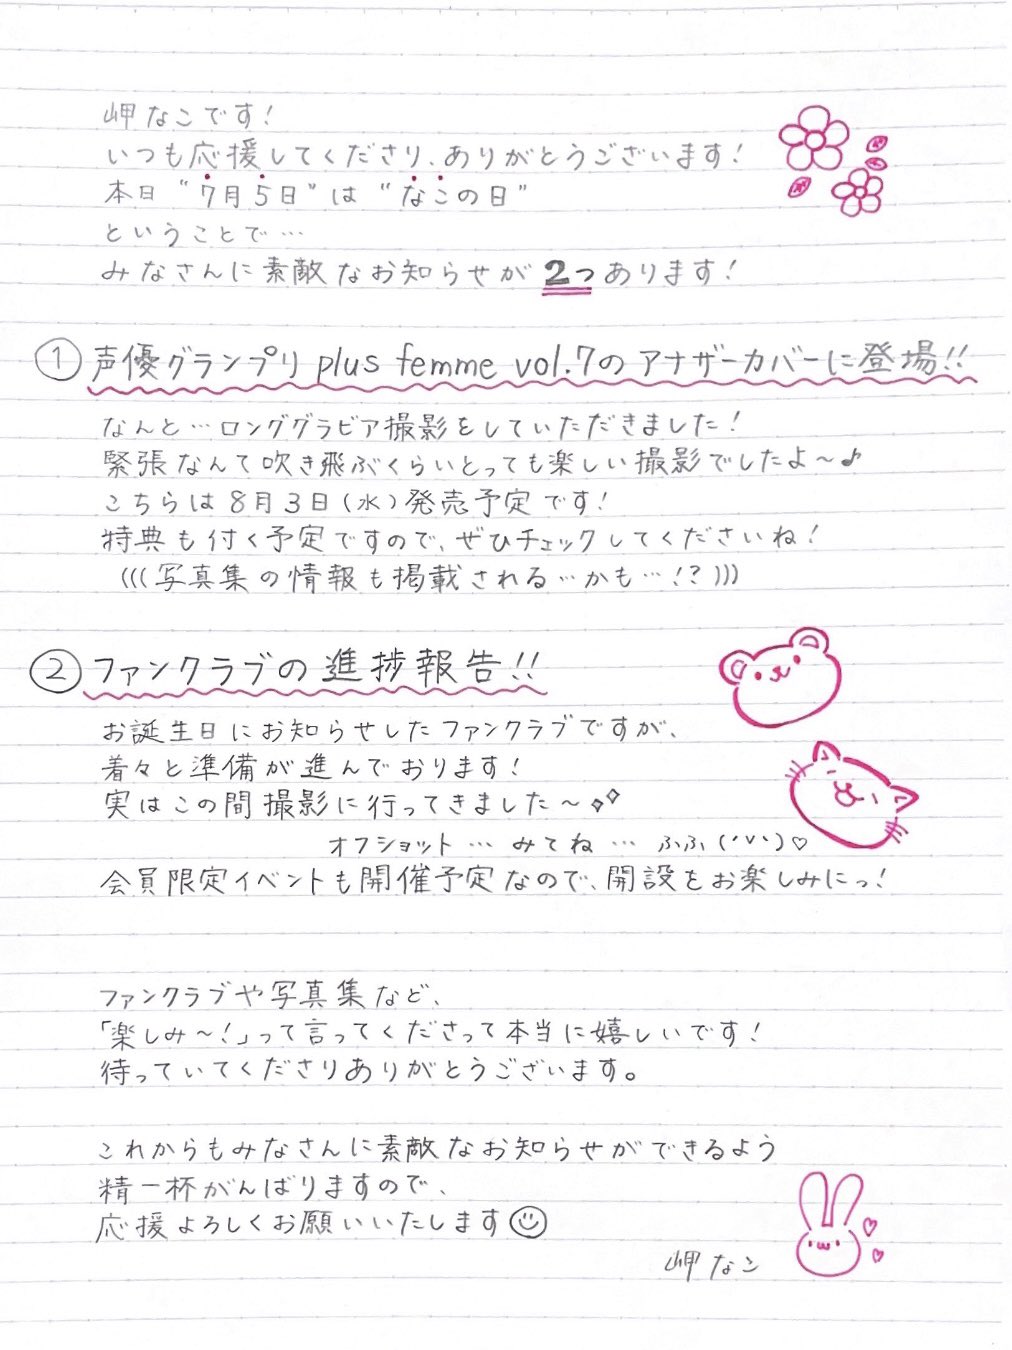 岬なこです!
いつも応援してくださり、ありがとうございます!
本日 "7月5日" は "なこの日"
ということで…
みなさんに素敵なお知らせが 2つ あります!
① 声優グランプリ plus femme vol.7のアナザーカバーに登場!!
なんと…ロンググラビア撮影をしていただきました!
緊張なんて吹き飛ぶくらいとっても楽しい撮影でしたよ〜♪
こちらは8月3日(水)発売予定です!
特典も付く予定ですので、ぜひチェックしてくださいね!
(((写真集の情報も掲載される…かも…!?)))
② ファンクラブの進捗報告!!
お誕生日にお知らせしたファンクラブですが、
着々と準備が進んでおります!
実はこの間撮影に行ってきました〜
オフショット… みてね… ふふ(˙v˙)♡
会員限定イベントも開催予定なので、開設をお楽しみにっ!
ファンクラブや写真集など、
「楽しみ〜!」って言ってくださって本当に嬉しいです!
待っていてくださりありがとうございます。
これからもみなさんに素敵なお知らせができるよう
精一杯がんばりますので、
応援よろしくお願いいたします☺
岬なこ